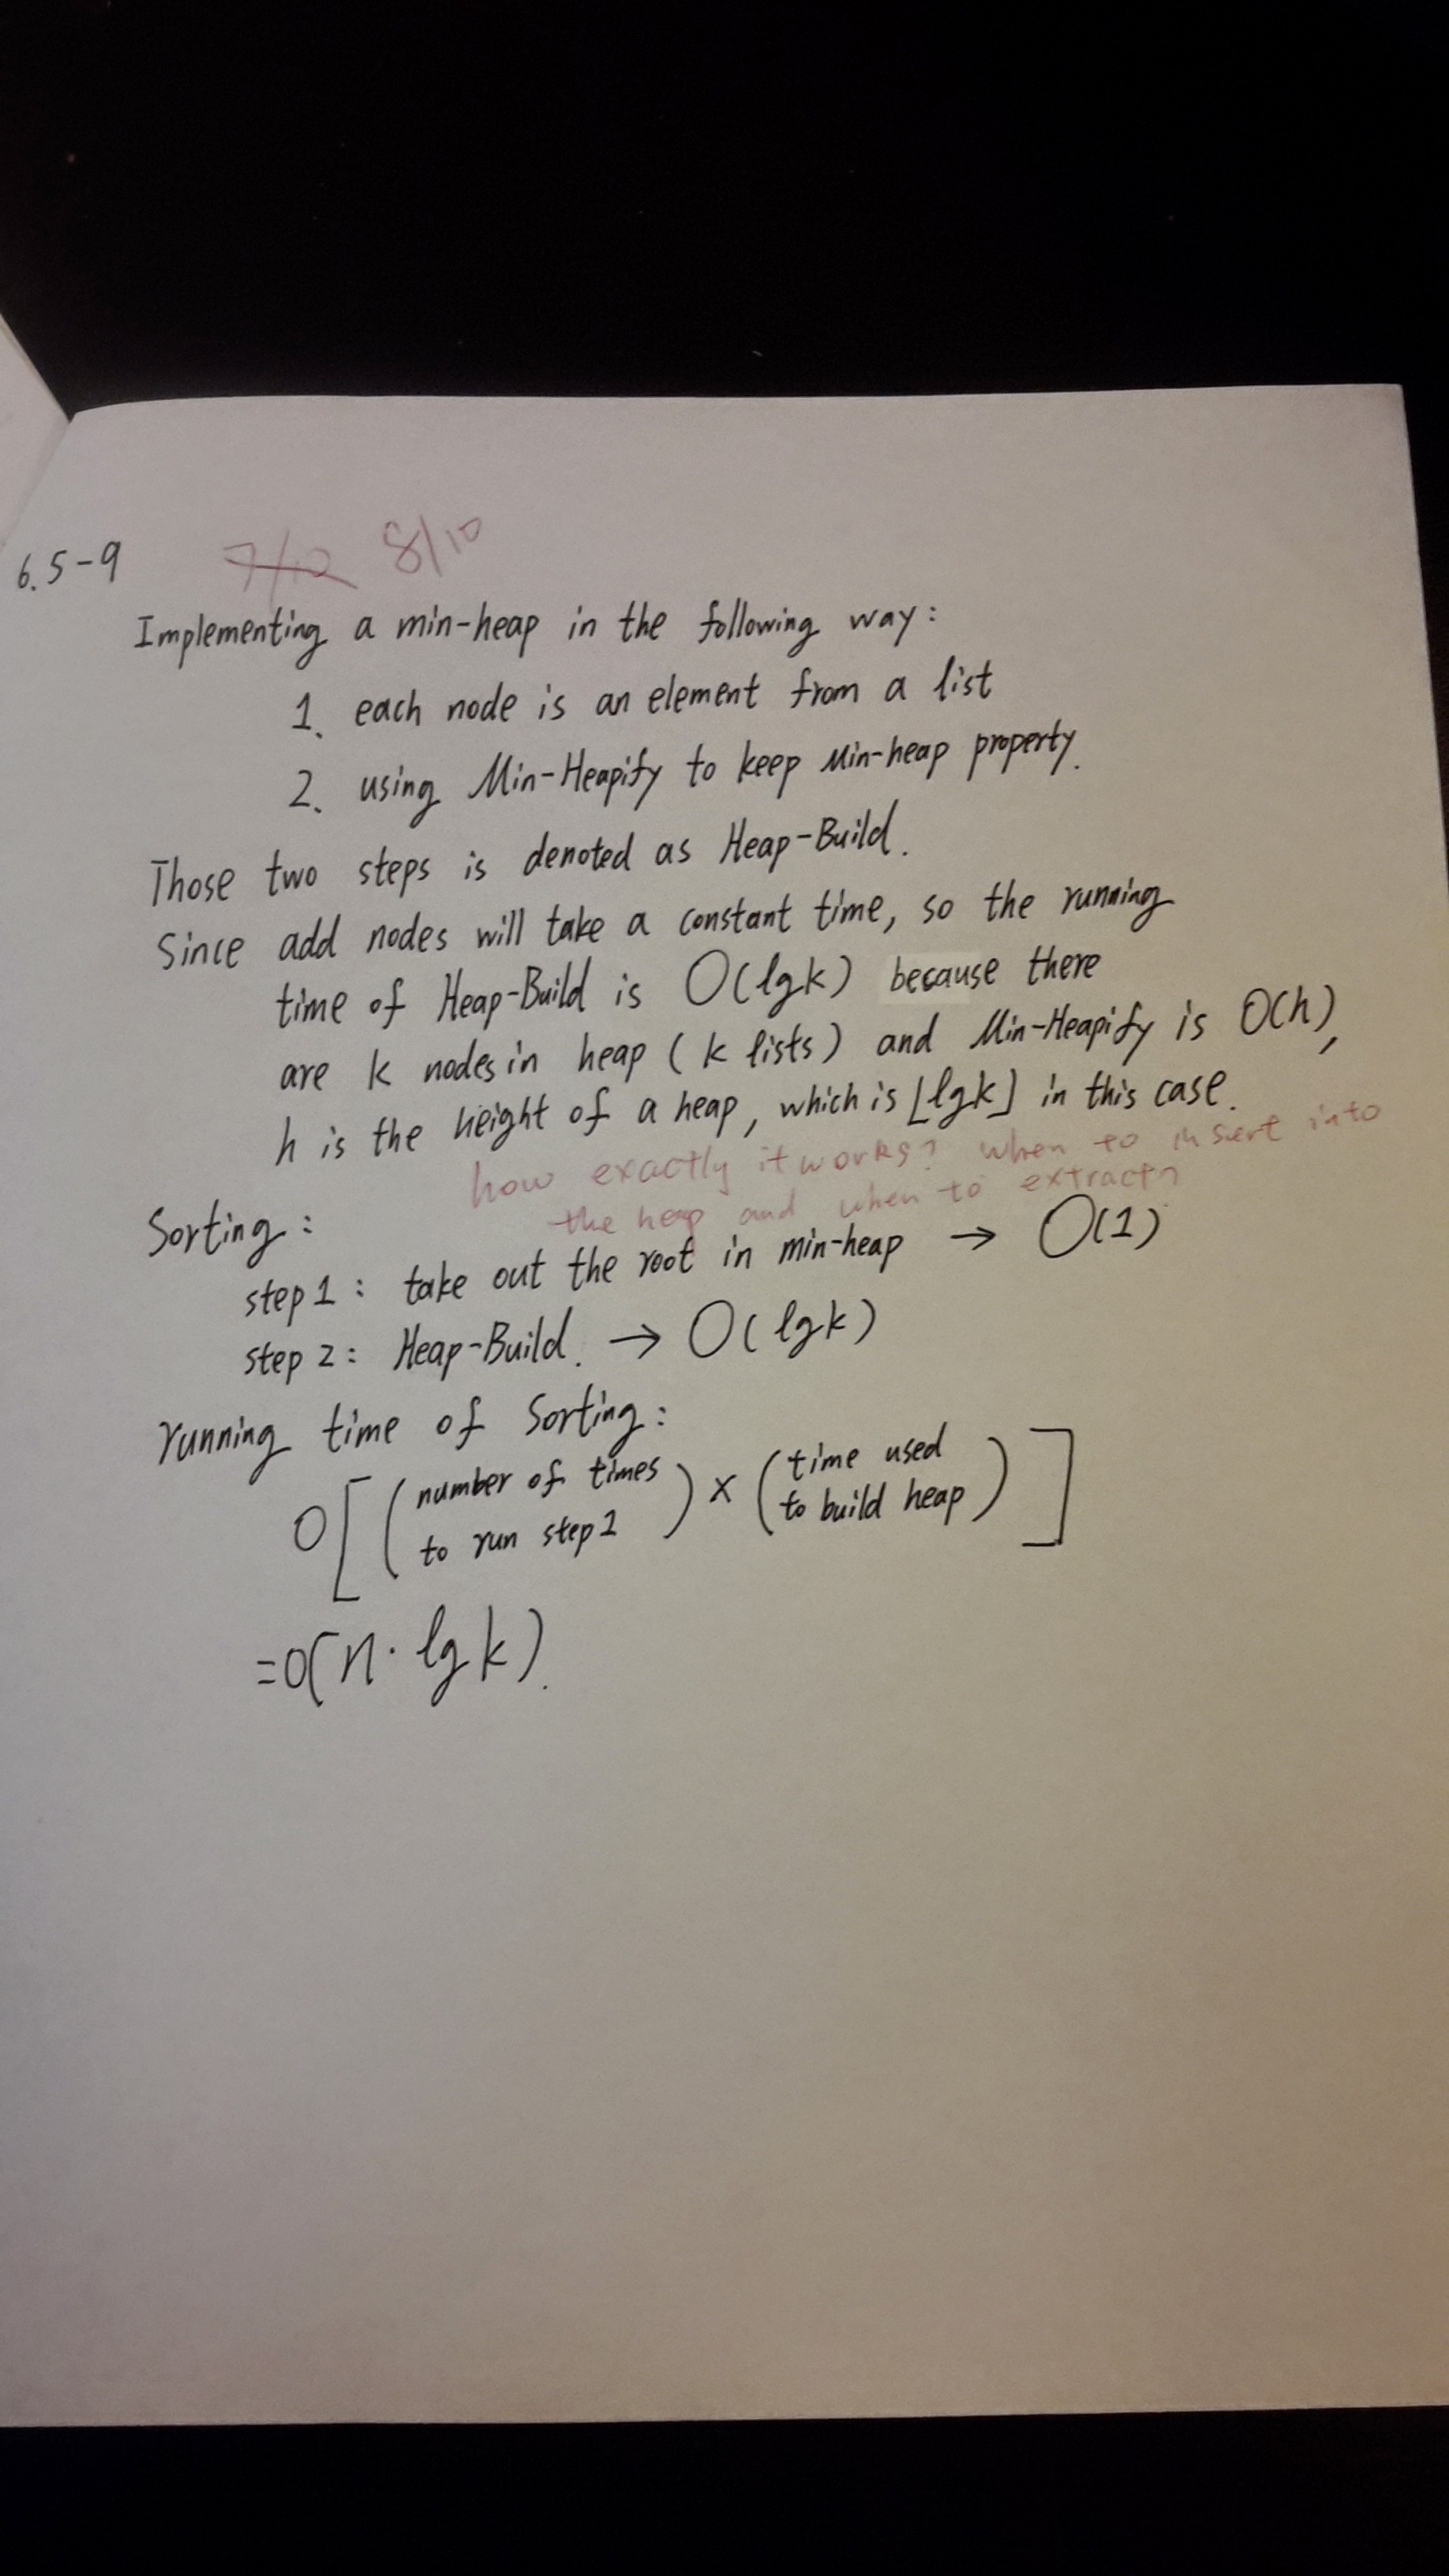 6.5-9 7/10 8/10
Implementing a min-heap in the following way:
1. each node is an element from a list
2. using Min-Heapify to keep Min-heap property.
Those two steps is denoted as Heap-Build.
Since add nodes will take a constant time, so the running
time of Heap-Build is O(lgk) because there
are k nodes in heap (k lists) and Min-Heapify is O(h),
h is the height of a heap, which is ⌊lgk⌋ in this case.
how exactly it works? when to insert into
the heap and when to extract?
Sorting:
step 1: take out the root in min-heap → O(1)
step 2: Heap-Build. → O(lgk)
running time of Sorting:
O[(number of times to run step 1) × (time used to build heap)]
=O(n·lgk).